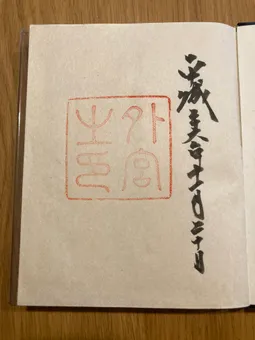 平成二十六年十一月二十日
外宮
之印